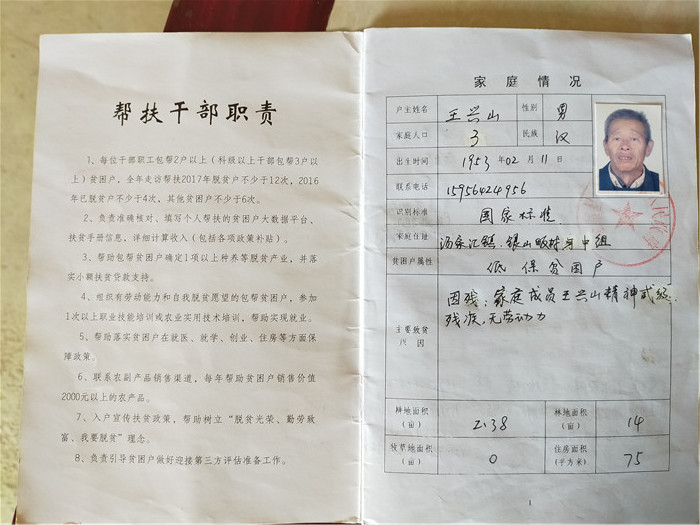 帮扶干部职责
1、每位干部职工包帮2户以上（科级以上干部包帮3户以
上）贫困户，全年走访帮扶2017年脱贫户不少于12次，2016
年已脱贫户不少于4次，其他贫困户不少于6次。
2、负责准确核对、填写个人帮扶的贫困户大数据平台、
扶贫手册信息，详细计算收入（包括各项政策补贴）。
3、帮助包帮贫困户确定1项以上种养等脱贫产业，并落
实小额扶贫贷款支持。
4、组织有劳动能力和自我脱贫愿望的包帮贫困户，参加
1次以上职业技能培训或农业实用技术培训，帮助实现就业。
5、帮助落实贫困户在就医、就学、创业、住房等方面保
障政策。
6、联系农副产品销售渠道，每年帮助贫困户销售价值
2000元以上的农产品。
7、入户宣传扶贫政策，帮助树立“脱贫光荣、勤劳致
富、我要脱贫”理念。
8、负责引导贫困户做好迎接第三方评估准备工作。
家庭情况
户主姓名 王兴山 性别 男
家庭人口 3 民族 汉
出生时间 1953年02月11日
联系电话 15956424956
识别标准 国家标准
家庭住址 汤家汇镇 银山畈村 中组
贫困户属性 低保贫困户
主要致贫
原因
因残：家庭成员王兴山精神贰级
残疾，无劳动力
耕地面积
（亩）
2.38
林地面积
（亩）
14
牧草地面积
（亩）
0
住房面积
（平方米）
75
1